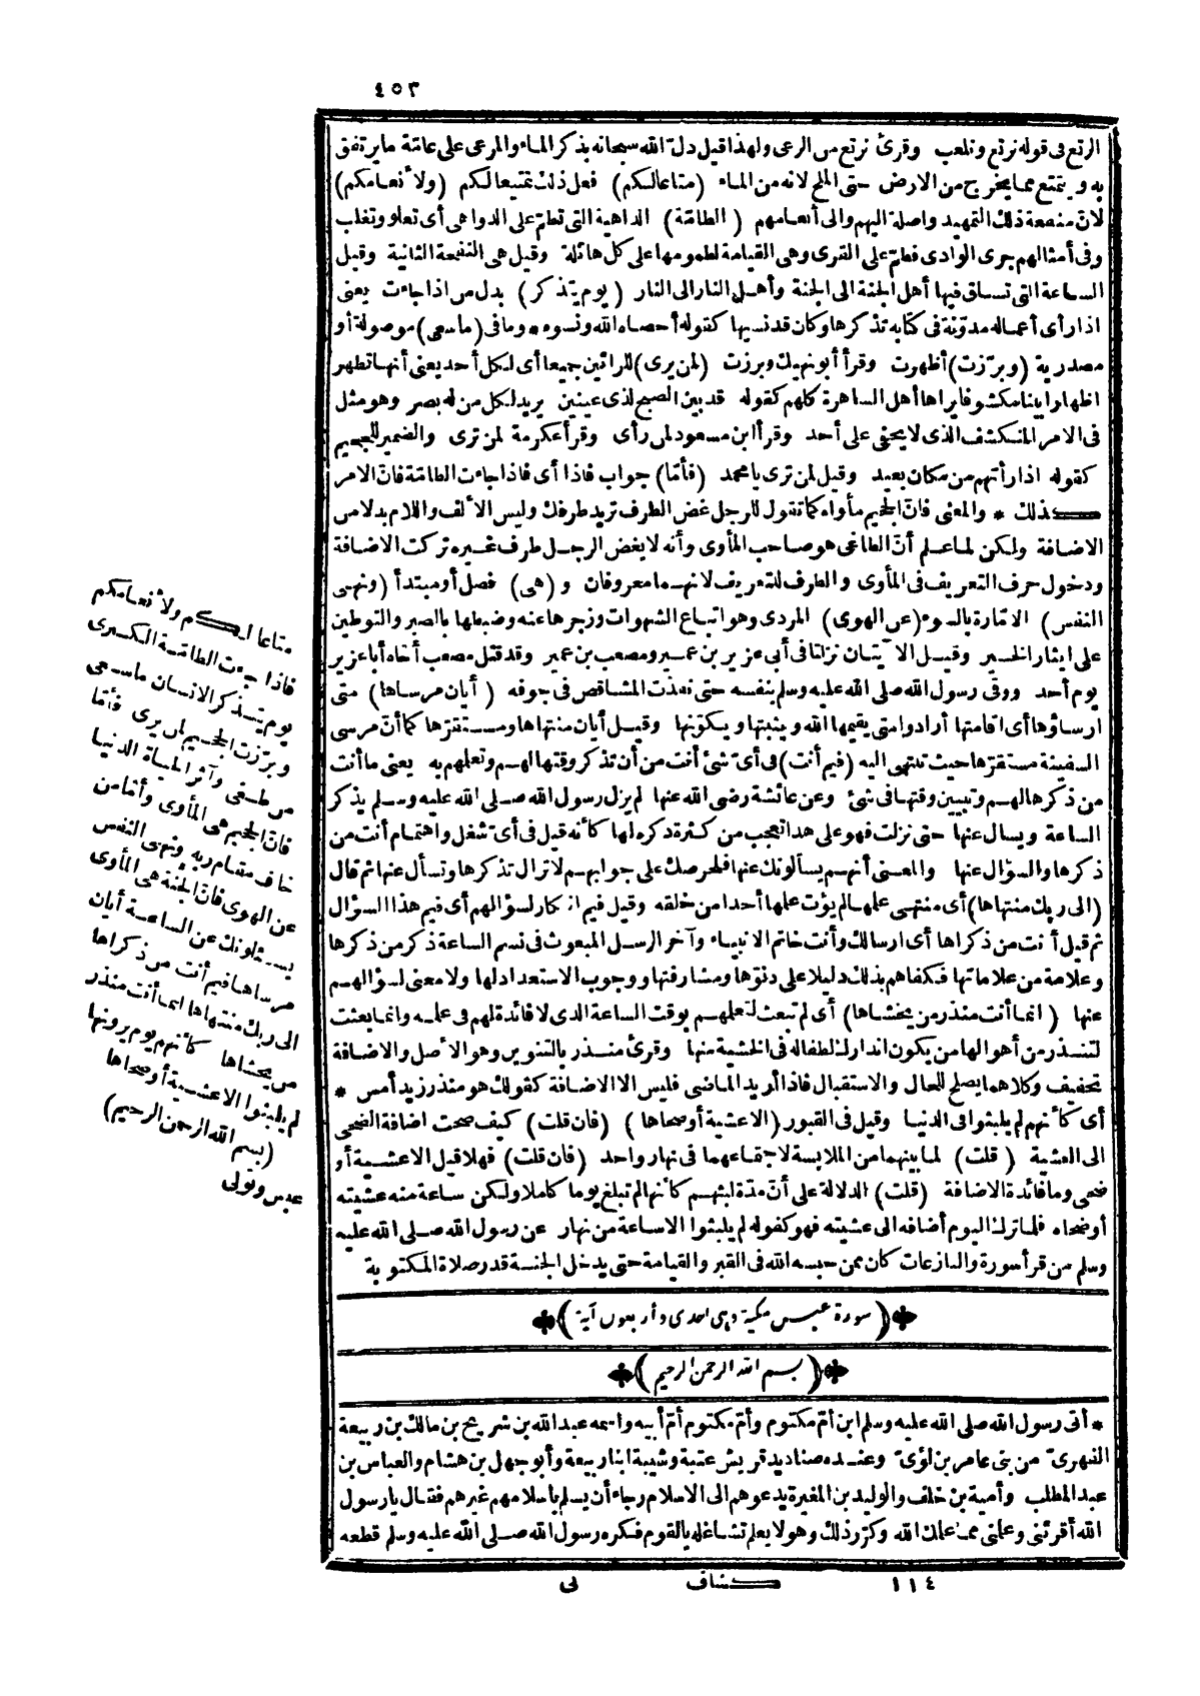 ٤٥٣
الرتع فى قوله نرتع ونلعب وقرئ نرتع من الرعى ولهذا قيل دل الله سبحانه بذكر الماء والمرعى على عامّة ما يرتفق
به ويتمتع مما يخرج من الارض حتى الملح لانه من الماء (متاعا لكم) فعل ذلك تمتيعا لكم (ولأنعامكم)
لانّ منفعة ذلك التمهيد واصلة اليهم والى أنعامهم (الطامّة) الداهية التى تطمّ على الدواهى أى تعلو وتغلب
وفى أمثالهم جرى الوادى فطمّ على القرى وهى القيامة لطمومها على كل هائلة وقيل هى النفخة الثانية وقيل
الساعة التى تساق فيها أهل الجنة الى الجنة وأهل النار الى النار (يوم يتذكر) بدل من اذا جاءت يعنى
اذا رأى أعماله مدوّنة فى كتابه تذكرها وكان قد نسيها كقوله أحصاه الله ونسوه * وما فى (ما سعى) موصولة أو
مصدرية (وبرّزت) أظهرت وقرأ أبو نهيك وبرزت (لمن يرى) للرائين جميعا أى لكل أحد يعنى أنها تظهر
اظهارا بينا مكشوفا يراها أهل الساهرة كلهم كقوله قد بين الصبح لذى عينين يريد لكل من له بصر وهو مثل
فى الامر المنكشف الذى لا يخفى على أحد وقرأ ابن مسعود لمن رأى وقرأ عكرمة لمن ترى والضمير للجحيم
كقوله اذا رأتهم من مكان بعيد وقيل لمن ترى يا محمد (فأمّا) جواب فاذا أى فاذا جاءت الطامّة فانّ الامر
كذلك * والمعنى فانّ الجحيم مأواه كما تقول للرجل غض الطرف تريد طرفك وليس الألف واللام بدلا من
الاضافة ولكن لما علم أنّ الطاغى هو صاحب المأوى وأنه لا يغض الرجل طرف غيره تركت الاضافة
ودخول حرف التعريف فى المأوى والطرف للتعريف لانهما معروفان و (هى) فصل أو مبتدأ (ونهى
النفس) الامّارة بالسوء (عن الهوى) المردى وهو اتباع الشهوات وزجرها عنه وضبطها بالصبر والتوطين
على ايثار الخير وقيل الآيتان نزلتا فى أبى عزير بن عمير ومصعب بن عمير وقد قتل مصعب أخاه أبا عزير
يوم أحد ووقى رسول الله صلى الله عليه وسلم بنفسه حتى نفذت المشاقص فى جوفه (أيان مرساها) متى
ارساؤها أى اقامتها أرادوا متى يقيمها الله ويثبتها ويكوّنها وقيل أيان منتهاها ومستقرّها كما أنّ مرسى
السفينة مستقرّها حيث تنتهى اليه (فيم أنت) فى أىّ شئ أنت من أن تذكر وقتها لهم وتعلمهم به يعنى ما أنت
من ذكرها لهم وتبيين وقتها فى شئ وعن عائشة رضى الله عنها لم يزل رسول الله صلى الله عليه وسلم يذكر
الساعة ويسأل عنها حتى نزلت فهو على هذا تعجب من كثرة ذكره لها كأنه قيل فى أىّ شغل واهتمام أنت من
ذكرها والسؤال عنها والمعنى أنهم يسألونك عنها فلحرصك على جوابهم لا تزال تذكرها وتسأل عنها ثم قال
(الى ربك منتهاها) أى منتهى علمها لم يؤت علمها أحدا من خلقه وقيل فيم انكار لسؤالهم أى فيم هذا السؤال
ثم قيل أنت من ذكراها أى ارسالك وأنت خاتم الانبياء وآخر الرسل المبعوث فى نسم الساعة ذكر من ذكرها
وعلامة من علاماتها فكفاهم بذلك دليلا على دنوّها ومشارفتها ووجوب الاستعداد لها ولا معنى لسؤالهم
عنها (انما أنت منذر من يخشاها) أى لم تبعث لتعلمهم بوقت الساعة الذى لا فائدة لهم فى علمه وانما بعثت
لتنذر من أهوالها من يكون انذارك لطفا له فى الخشية منها وقرئ منذر بالتنوين وهو الأصل والاضافة
تخفيف وكلاهما يصلح للحال والاستقبال فاذا أريد الماضى فليس الا الاضافة كقولك هو منذر زيد أمس *
أى كأنهم لم يلبثوا فى الدنيا وقيل فى القبور (الا عشية أو ضحاها) (فان قلت) كيف صحت اضافة الضحى
الى العشية (قلت) لما بينهما من الملابسة لاجتماعهما فى نهار واحد (فان قلت) فهلا قيل الا عشية أو
ضحى وما فائدة الاضافة (قلت) الدلالة على أنّ مدّة لبثهم كأنها لم تبلغ يوما كاملا ولكن ساعة منه عشيته
أو ضحاه فلما ترك اليوم أضافه الى عشيته فهو كقوله لم يلبثوا الا ساعة من نهار عن رسول الله صلى الله عليه
وسلم من قرأ سورة والنازعات كان ممن حبسه الله فى القبر والقيامة حتى يدخل الجنة قدر صلاة المكتوبة
متاعا لكم ولأنعامكم
فاذا جاءت الطامّة الكبرى
يوم يتذكر الانسان ما سعى
وبرّزت الجحيم لمن يرى فأمّا
من طغى وآثر الحياة الدنيا
فانّ الجحيم هى المأوى وأمّا من
خاف مقام ربه ونهى النفس
عن الهوى فانّ الجنة هى المأوى
يسئلونك عن الساعة أيان
مرساها فيم أنت من ذكراها
الى ربك منتهاها انما أنت منذر
من يخشاها كأنهم يوم يرونها
لم يلبثوا الا عشية أو ضحاها
(بسم الله الرحمن الرحيم)
عبس وتولى
(سورة عبس مكية وهى احدى وأربعون آية)
(بسم الله الرحمن الرحيم)
* أتى رسول الله صلى الله عليه وسلم ابن أمّ مكتوم وأمّ مكتوم أمّ أبيه واسمه عبد الله بن شريح بن مالك بن ربيعة
الفهرىّ من بنى عامر بن لؤىّ وعنده صناديد قريش عتبة وشيبة ابنا ربيعة وأبو جهل بن هشام والعباس بن
عبد المطلب وأمية بن خلف والوليد بن المغيرة يدعوهم الى الاسلام رجاء أن يسلم باسلامهم غيرهم فقال يا رسول
الله أقرئنى وعلمنى مما علمك الله وكرّر ذلك وهو لا يعلم تشاغله بالقوم فكره رسول الله صلى الله عليه وسلم قطعه
١١٤ كشاف نى